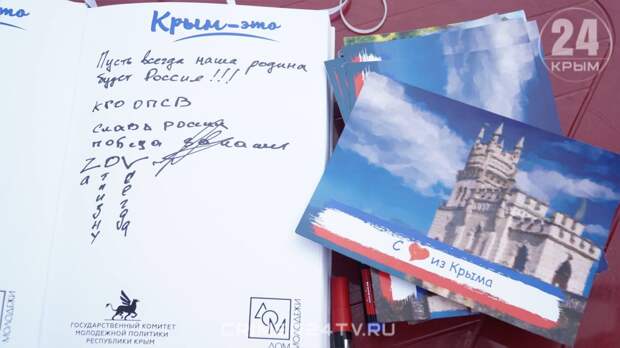 это
Крым–это
Пусть всегда наша родина
будет Россия!!!
КРО ОПСВ
Слава России
победа за нами
ZOV
ГОСУДАРСТВЕННЫЙ КОМИТЕТ
МОЛОДЕЖНОЙ ПОЛИТИКИ
РЕСПУБЛИКИ КРЫМ
ДОМ
МОЛОДЕЖИ
МОЛОДЕЖИ
С из Крыма
24
КРЫМ
24TV.RU